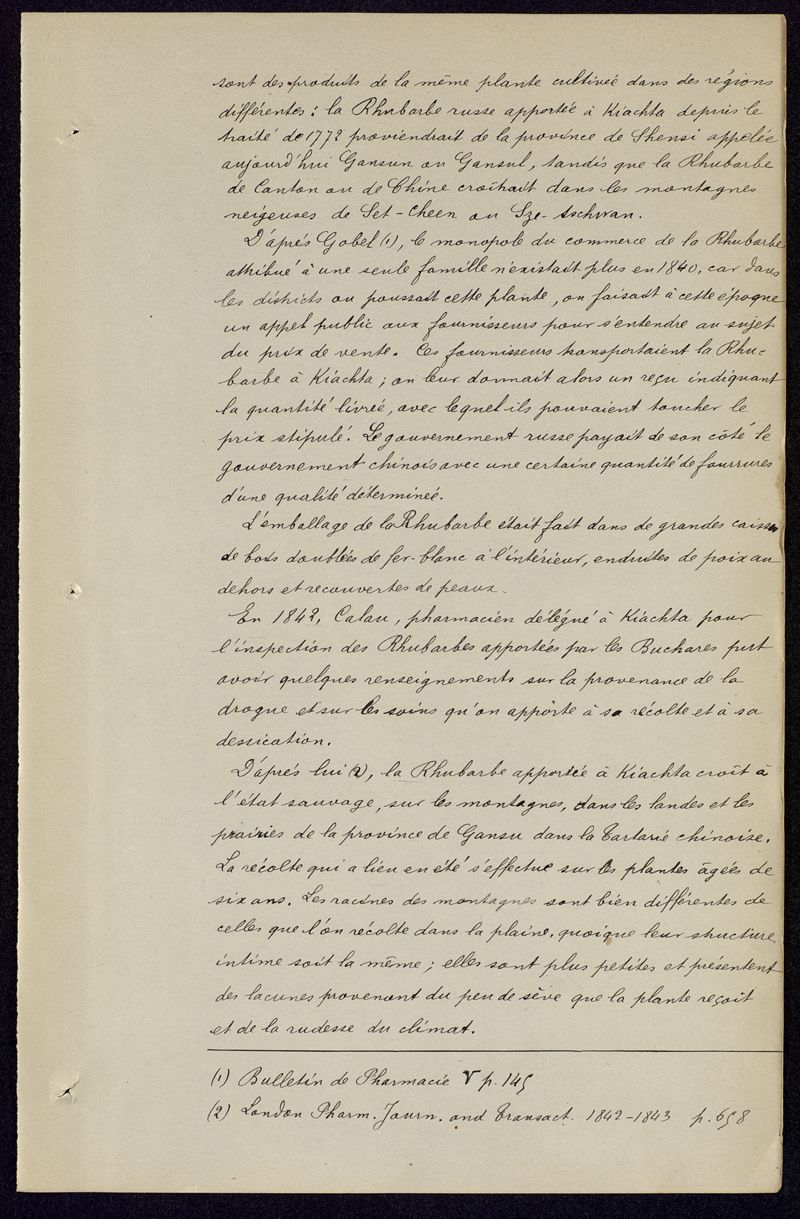 sont des produits de la même plante cultivée dans des régions
différentes : la Rhubarbe russe apportée à Kiachta depuis le
traité de 1772 proviendrait de la province de Shensi appelée
aujourd'hui Gansun ou Gansul, tandis que la Rhubarbe
de Canton ou de Chine croîtrait dans les montagnes
neigeuses de Set-Cheen ou Sze-tschwan.
D'après Gobel (1), le monopole du commerce de la Rhubarbe
attribué à une seule famille n'existait plus en 1840, car dans
les districts ou poussait cette plante, on faisait à cette époque
un appel public aux fournisseurs pour s'entendre au sujet
du prix de vente. Ces fournisseurs transportaient la Rhu-
barbe à Kiachta ; on leur donnait alors un reçu indiquant
la quantité livrée, avec lequel ils pouvaient toucher le
prix stipulé. Le gouvernement russe payait de son côté le
gouvernement chinois avec une certaine quantité de fourrures
d'une qualité déterminée.
L'emballage de la Rhubarbe était fait dans de grandes caisses
de bois doublées de fer-blanc à l'intérieur, enduites de poix au
dehors et recouvertes de peaux.
En 1842, Calau, pharmacien délégué à Kiachta pour
l'inspection des Rhubarbes apportées par les Buchares put
avoir quelques renseignements sur la provenance de la
drogue et sur les soins qu'on apporte à sa récolte et à sa
dessication.
D'après lui (2), la Rhubarbe apportée à Kiachta croît à
l'état sauvage, sur les montagnes, dans les landes et les
prairies de la province de Gansu dans la Tartarie chinoise.
La récolte qui a lieu en été s'effectue sur les plantes âgées de
six ans. Les racines des montagnes sont bien différentes de
celles que l'on récolte dans la plaine, quoique leur structure
intime soit la même ; elles sont plus petites et présentent
des lacunes provenant du peu de sève que la plante reçoit
et de la rudesse du climat.
(1) Bulletin de Pharmacie V p. 145
(2) London Pharm. Journ. and Transact. 1842-1843 p. 658